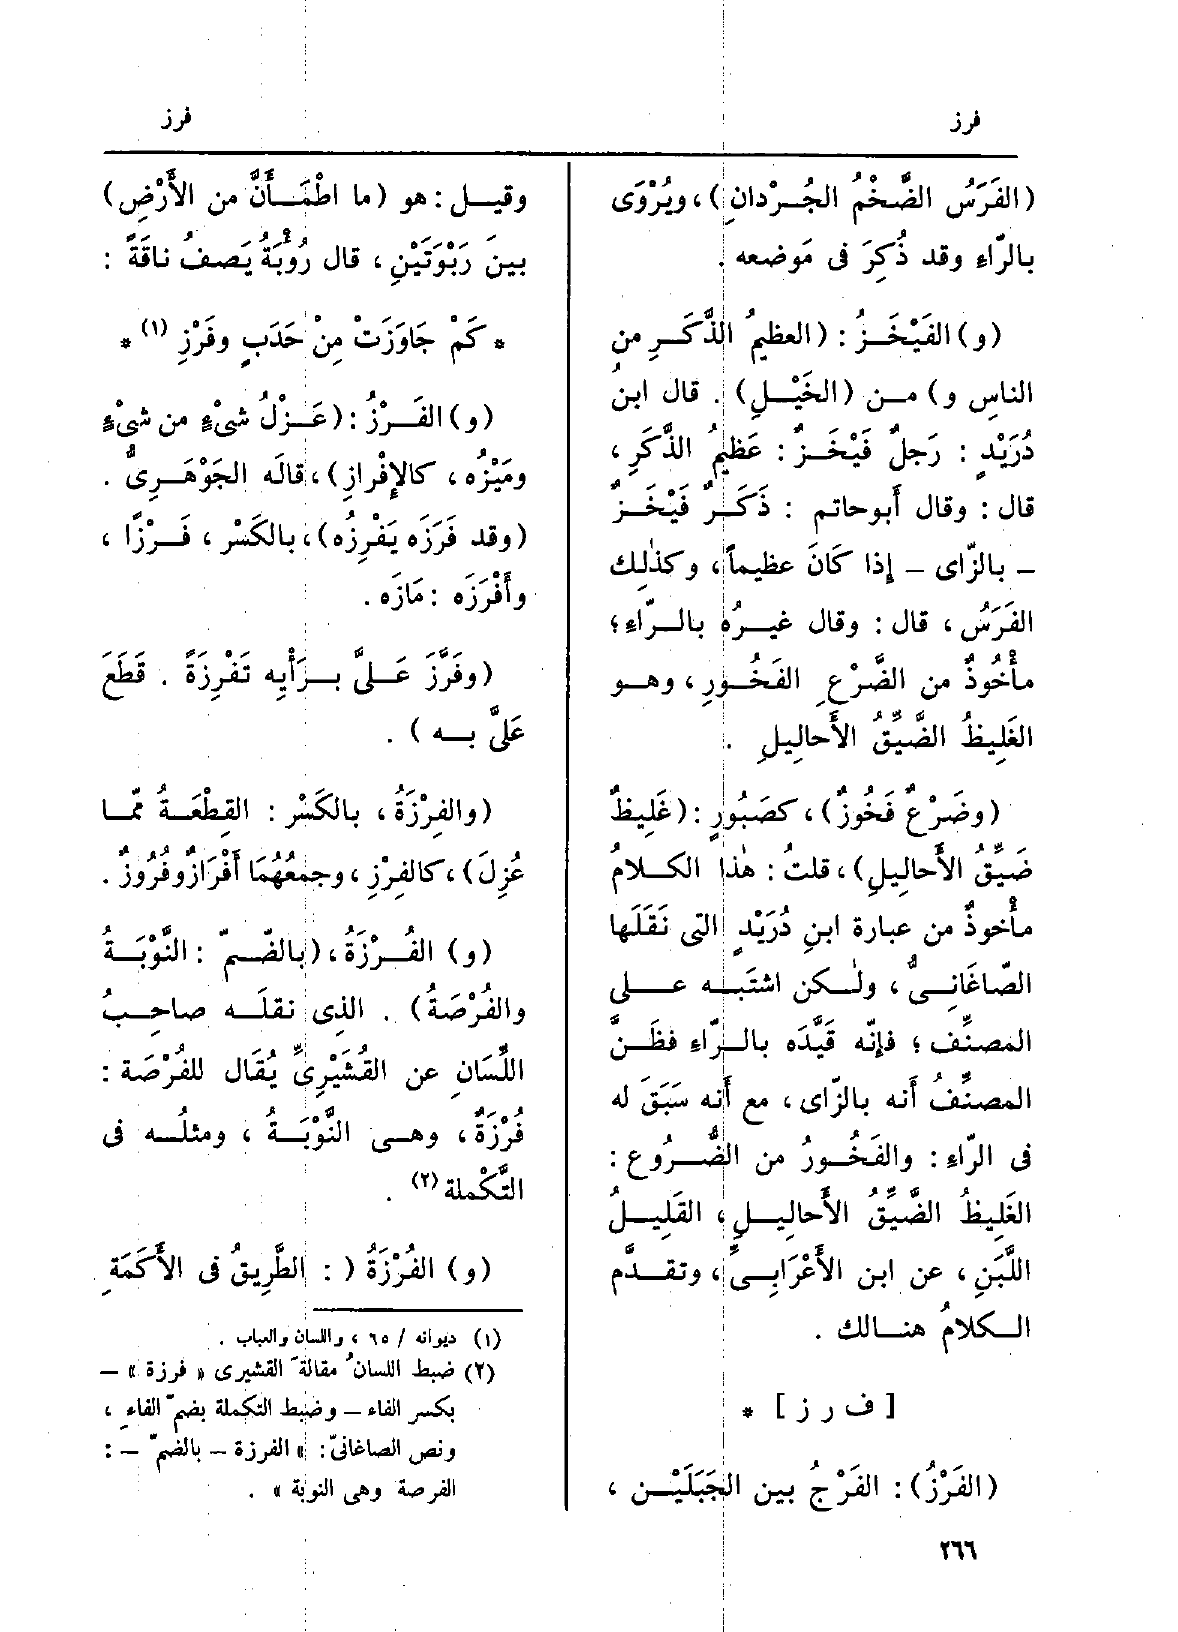 فرز
فرز
(الفَرَسُ الضَّخْمُ الجُرْدانِ)، ويُرْوَى
بالرّاءِ وقد ذُكِرَ فى مَوضعه .
(و) الفَيْخَزُ : (العظيمُ الذَّكَرِ من
الناسِ و) من (الخَيْلِ) . قال ابنُ
دُرَيْدٍ : رَجلٌ فَيْخَزٌ : عَظيمُ الذَّكَرِ ،
قال : وقال أَبو حاتم : ذَكَرٌ فَيْخَزٌ
– بالزّاى – إِذا كَانَ عظيماً، وكذٰلك
الفَرَسُ ، قال : وقال غيرُه بالرّاءِ؛
مأْخُوذٌ من الضَّرْعِ الفَخُورِ، وهو
الغَلِيظُ الضَّيِّقُ الأَحالِيلِ .
(وضَرْعٌ فَخُوزٌ)، كصَبُورٍ : (غَلِيظٌ
ضَيِّقُ الأَحالِيلِ)، قلتُ : هٰذا الكلامُ
مأْخوذٌ من عبارة ابنِ دُرَيْدٍ التى نَقَلَها
الصّاغَانِىُّ ، ولٰكن اشتَبَه على
المصنِّف ؛ فإِنّه قَيَّدَه بالرّاءِ فظَنَّ
المصنِّفُ أَنه بالزّاى ، مع أَنه سَبَقَ له
فى الرّاءِ : والفَخُورُ من الضُّرُوع :
الغَلِيظُ الضَّيِّقُ الأَحالِيلِ ، القَلِيلُ
اللَّبَنِ ، عن ابن الأَعْرَابِىِّ ، وتقدَّم
الكلامُ هنالك .
[ ف ر ز ] *
(الفَرْزُ) : الفَرْجُ بين الجَبَلَيْن ،
وقيل : هو (ما اطْمَأَنَّ من الأَرْضِ)
بينَ رَبْوَتَيْنِ ، قال رُؤْبَةُ يَصفُ ناقَةً :
* كَمْ جَاوَزَتْ مِنْ حَدَبٍ وفَرْزِ (١) *
(و) الفَرْزُ : (عَزْلُ شىْءٍ من شىْءٍ
ومَيْزُه ، كالإِفْرازِ)، قالَه الجَوْهَرِىُّ .
(وقد فَرَزَه يَفْرِزُه)، بالكَسْر ، فَرْزًا ،
وأَفْرَزَه : مَازَه .
(وفَرَّزَ عَلىَّ بِرَأْيِه تَفْرِزَةً . قَطَعَ
عَلىَّ به ) .
(والفِرْزَةُ ، بالكَسْرِ : القِطْعَةُ ممّا
عُزِلَ)، كالفِرْزِ ، وجمعُهُمَا أَفْرَازٌ وفُرُوزٌ .
(و) الفُرْزَةُ ، (بالضّمّ : النَّوْبَةُ
والفُرْصَةُ) . الذى نقلَه صاحِبُ
اللِّسَانِ عن القُشَيْرِىِّ يُقَال للفُرْصَة :
فُرْزَةٌ، وهى النَّوْبَةُ ، ومثلُه فى
التَّكْملة (٢) .
(و) الفُرْزَةُ ( : الطَّرِيقُ فى الأَكَمَةِ
(١) ديوانه / ٦٥ ، واللسان والعباب .
(٢) ضبط اللسانُ مقالةَ القشيرى « فرزة » –
بكسر الفاء – وضبط التكملة بضمّ الفاءِ ،
ونص الصاغانىّ : « الفرزة – بالضمّ – :
الفرصة وهى النوبة » .
٢٦٦